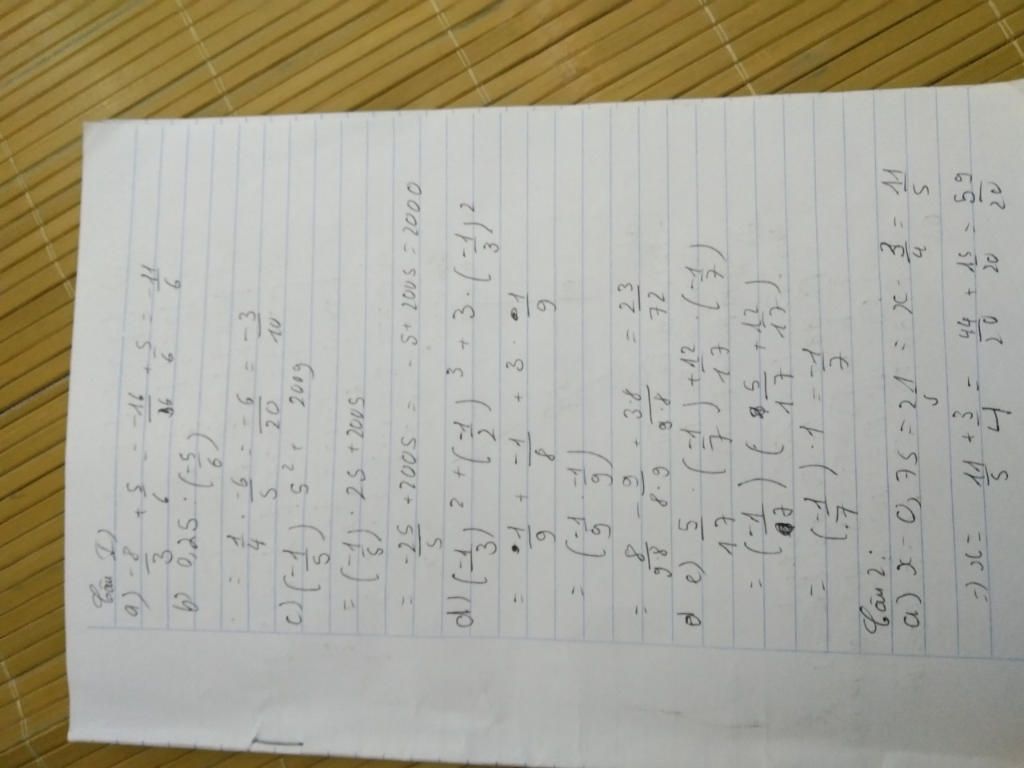 Câu 1)
a) -8/3 + 5/6 = -16/6 + 5/6 = -11/6
b) 0,25 : (-5/6)
= 1/4 . -6/5 = -6/20 = -3/10
c) (-1/5) . 5² + 2009
= (-1/5) . 25 + 2005
= -25/5 + 2005 = -5 + 2005 = 2000
d) (-1/3)² + (-1/2)³ + 3 . (-1/3)²
= 1/9 + -1/8 + 3 . 1/9
= (-1/9 . -1/9)
= 8/98 - 9/8.9 + 3.8/9.8 = 23/72
e) 5/17 . (-1/7) + 12/17 . (-1/7)
= (-1/7) (5/17 + 12/17)
= (-1/7) . 1 = -1/7
Câu 2:
a) x - 0,75 = 21/5 = x - 3/4 = 11/5
=) x = 11/5 + 3/4 = 44/20 + 15/20 = 59/20